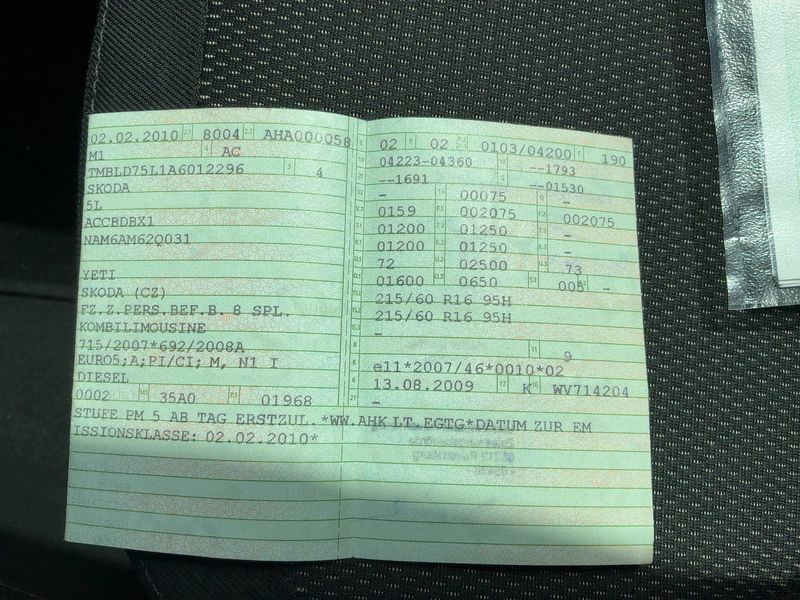 02.02.2010 8004 AHA000058
M1 AC
TMBLD75L1A6012296 4
SKODA
5L
ACCBDBX1
NAM6AM62Q031
YETI
SKODA (CZ)
FZ.Z.PERS.BEF.B. 8 SPL.
KOMBILIMOUSINE
715/2007*692/2008A
EURO5;A;PI/CI; M, N1 I
DIESEL
0002 35A0 01968
02 02 0103/04200 190
04223-04360 --1793
--1691 --01530
- 00075 -
0159 002075 002075
01200 01250 -
01200 01250 -
72 02500 73
01600 0650 005 -
215/60 R16 95H
215/60 R16 95H
-
9
e11*2007/46*0010*02
13.08.2009 K WV714204
-
STUFE PM 5 AB TAG ERSTZUL.*WW.AHK LT.EGTG*DATUM ZUR EM
ISSIONSKLASSE: 02.02.2010*